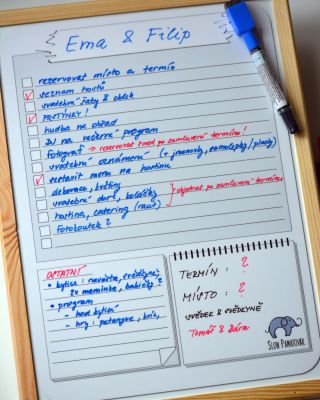 Ema & Filip
rezervovat místo a termín
seznam hostů
svatební šaty & oblek
PRSTÝNKY!
hudba na obřad
DJ na večerní program
fotograf → rezervovat hned po zamluvení termínu!
svatební oznámení (+ jmenovky, samolepky, placky)
sestavit menu na hostinu
dekorace, květiny
svatební dary, koláčky } objednat po zamluvení termínu
hostina, catering (raut)
fotokoutek?
OSTATNÍ
kytice: nevěsta, svědkyně,
2x maminka, babičky?
program
- hod kyticí
- hry: petangue, kvís,
TERMÍN: ?
MÍSTO: ?
SVĚDEK & SVĚDKYNĚ
Tomáš & Bára
SLON PAMATOVÁK